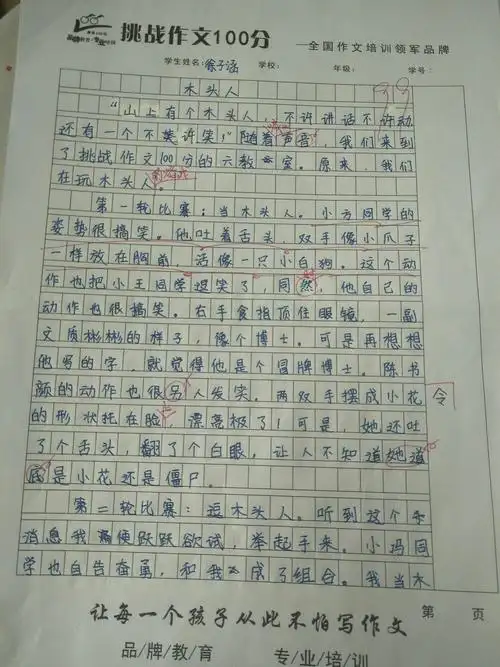 挑战作文100分
—全国作文培训领军品牌
品牌教育·专业培训
学生姓名:徐子涵 学校: 年级: 学号:
99
木头人
“山上有个木头人,不许讲话不许动
还有一个不许笑!”随着声音,我们来到
了挑战作文100分的六教室。原来,我们
在玩木头人。
第一轮比赛:当木头人。小方同学的
姿势很搞笑。他吐着舌头,双手像小爪子
一样放在胸前,活像一只小白狗。这个动
作也把小王同学逗笑了,同然,他自己的
动作也很搞笑。右手食指顶住眼镜,一副
文质彬彬的样子,像个博士。可是再想想
他写的字,就觉得他是个冒牌博士。陈书
颜的动作也很另人发笑。两双手摆成小花
令
的形状托在脸,漂亮极了!可是,她还吐
了个舌头,翻了个白眼。让人不知道她道
底是小花还是僵尸。
第二轮比赛:逗木头人。听到这个
消息我便跃跃欲试,举起手来。小冯同
学也自告奋勇,和我成了组合。我当木
让每一个孩子从此不怕写作文
第 页
品/牌/教/育 专/业/培/训